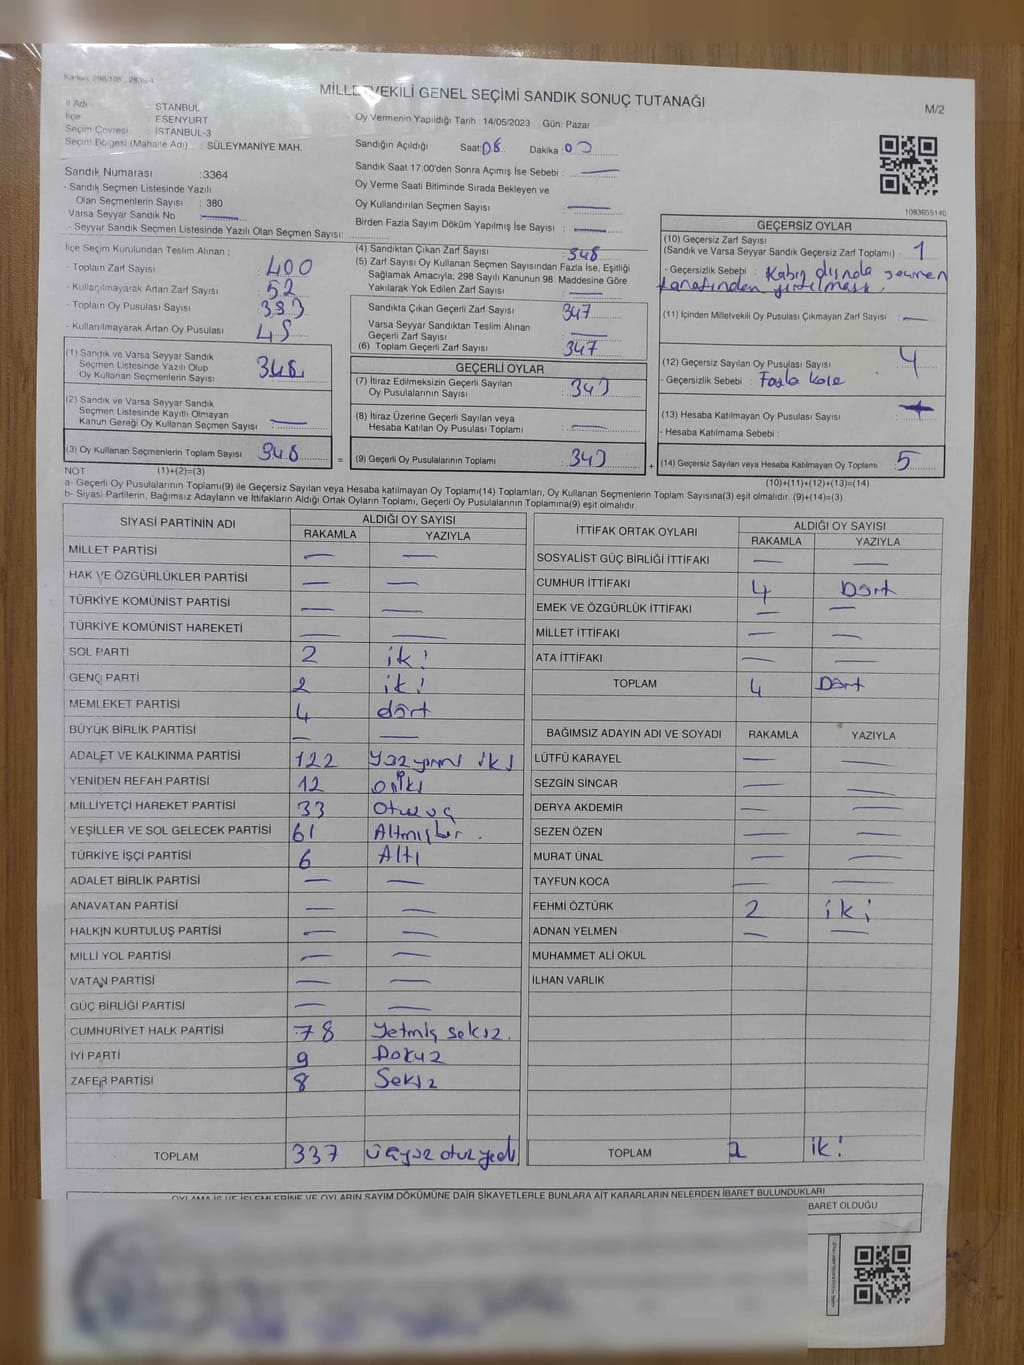 MİLLETVEKİLİ GENEL SEÇİMİ SANDIK SONUÇ TUTANAĞI
M/2
İl Adı : STANBUL
İlçe : ESENYURT
Seçim Çevresi : İSTANBUL-3
Seçim Bölgesi (Mahalle Adı) : SÜLEYMANİYE MAH.
Oy Vermenin Yapıldığı Tarih : 14/05/2023 Gün: Pazar
Sandığın Açıldığı Saat: 08 Dakika 00
Sandık Saat 17:00'den Sonra Açımış İse Sebebi : —
Oy Verme Saati Bitiminde Sırada Bekleyen ve
Oy Kullandırılan Seçmen Sayısı —
Birden Fazla Sayım Döküm Yapılmış İse Sayısı : —
1083655140
Sandık Numarası :3364
- Sandık Seçmen Listesinde Yazılı
Olan Seçmenlerin Sayısı : 380
Varsa Seyyar Sandık No —
- Seyyar Sandık Seçmen Listesinde Yazılı Olan Seçmen Sayısı:
İlçe Seçim Kurulundan Teslim Alınan ;
- Toplam Zarf Sayısı : 400
- Kullanılmayarak Artan Zarf Sayısı : 52
- Toplam Oy Pusulası Sayısı : 393
- Kullanılmayarak Artan Oy Pusulası : 45
(1) Sandık ve Varsa Seyyar Sandık
Seçmen Listesinde Yazılı Olup
Oy Kullanan Seçmenlerin Sayısı : 348
(2) Sandık ve Varsa Seyyar Sandık
Seçmen Listesinde Kayıtlı Olmayan
Kanun Gereği Oy Kullanan Seçmen Sayısı : —
(3) Oy Kullanan Seçmenlerin Toplam Sayısı 348
(4) Sandıktan Çıkan Zarf Sayısı 348
(5) Zarf Sayısı Oy Kullanan Seçmen Sayısından Fazla İse, Eşitliği
Sağlamak Amacıyla; 298 Sayılı Kanunun 98. Maddesine Göre
Yakılarak Yok Edilen Zarf Sayısı : —
Sandıkta Çıkan Geçerli Zarf Sayısı 347
Varsa Seyyar Sandıktan Teslim Alınan
Geçerli Zarf Sayısı —
(6) Toplam Geçerli Zarf Sayısı 347
GEÇERLİ OYLAR
(7) İtiraz Edilmeksizin Geçerli Sayılan
Oy Pusulalarının Sayısı : 343
(8) İtiraz Üzerine Geçerli Sayılan veya
Hesaba Katılan Oy Pusulası Toplamı : —
= (9) Geçerli Oy Pusulalarının Toplamı : 343
GEÇERSİZ OYLAR
(10) Geçersiz Zarf Sayısı
(Sandık ve Varsa Seyyar Sandık Geçersiz Zarf Toplamı) : 1
- Geçersizlik Sebebi : Kabin dışında seçmen
tarafından yırtılması.
(11) İçinden Milletvekili Oy Pusulası Çıkmayan Zarf Sayısı : —
(12) Geçersiz Sayılan Oy Pusulası Sayısı : 4
- Geçersizlik Sebebi : Fazla Kaşe
(13) Hesaba Katılmayan Oy Pusulası Sayısı : —
- Hesaba Katılmama Sebebi :
+ (14) Geçersiz Sayılan veya Hesaba Katılmayan Oy Toplamı : 5
NOT (1)+(2)=(3)
(10)+(11)+(12)+(13)=(14)
a- Geçerli Oy Pusulalarının Toplamı(9) ile Geçersiz Sayılan veya Hesaba katılmayan Oy Toplamı(14) Toplamları, Oy Kullanan Seçmenlerin Toplam Sayısına(3) eşit olmalıdır. (9)+(14)=(3)
b- Siyasi Partilerin, Bağımsız Adayların ve İttifakların Aldığı Ortak Oyların Toplamı, Geçerli Oy Pusulalarının Toplamına(9) eşit olmalıdır.
SİYASİ PARTİNİN ADI ALDIĞI OY SAYISI
RAKAMLA YAZIYLA
MİLLET PARTİSİ — —
HAK VE ÖZGÜRLÜKLER PARTİSİ — —
TÜRKİYE KOMÜNİST PARTİSİ — —
TÜRKİYE KOMÜNİST HAREKETİ — —
SOL PARTİ 2 iki
GENÇ PARTİ 2 iki
MEMLEKET PARTİSİ 4 dört
BÜYÜK BİRLİK PARTİSİ — —
ADALET VE KALKINMA PARTİSİ 122 Yüzyirmi iki
YENİDEN REFAH PARTİSİ 12 oniki
MİLLİYETÇİ HAREKET PARTİSİ 33 Otuzüç
YEŞİLLER VE SOL GELECEK PARTİSİ 61 Altmışbir.
TÜRKİYE İŞÇİ PARTİSİ 6 Altı
ADALET BİRLİK PARTİSİ — —
ANAVATAN PARTİSİ — —
HALKIN KURTULUŞ PARTİSİ — —
MİLLİ YOL PARTİSİ — —
VATAN PARTİSİ — —
GÜÇ BİRLİĞİ PARTİSİ — —
CUMHURİYET HALK PARTİSİ 78 Yetmiş sekiz.
İYİ PARTİ 9 Dokuz
ZAFER PARTİSİ 8 Sekiz
TOPLAM 337 üçyüz otuz yedi
İTTİFAK ORTAK OYLARI ALDIĞI OY SAYISI
RAKAMLA YAZIYLA
SOSYALİST GÜÇ BİRLİĞİ İTTİFAKI — —
CUMHUR İTTİFAKI 4 Dört
EMEK VE ÖZGÜRLÜK İTTİFAKI — —
MİLLET İTTİFAKI — —
ATA İTTİFAKI — —
TOPLAM 4 Dört
BAĞIMSIZ ADAYIN ADI VE SOYADI RAKAMLA YAZIYLA
LÜTFÜ KARAYEL — —
SEZGİN SİNCAR — —
DERYA AKDEMİR — —
SEZEN ÖZEN — —
MURAT ÜNAL — —
TAYFUN KOCA — —
FEHMİ ÖZTÜRK 2 iki
ADNAN YELMEN — —
MUHAMMET ALİ OKUL
İLHAN VARLIK
TOPLAM 2 iki
OYLAMA İŞ VE İŞLEMLERİNE VE OYLARIN SAYIM DÖKÜMÜNE DAİR ŞİKAYETLERLE BUNLARA AİT KARARLARIN NELERDEN İBARET BULUNDUKLARI
BARET OLDUĞU